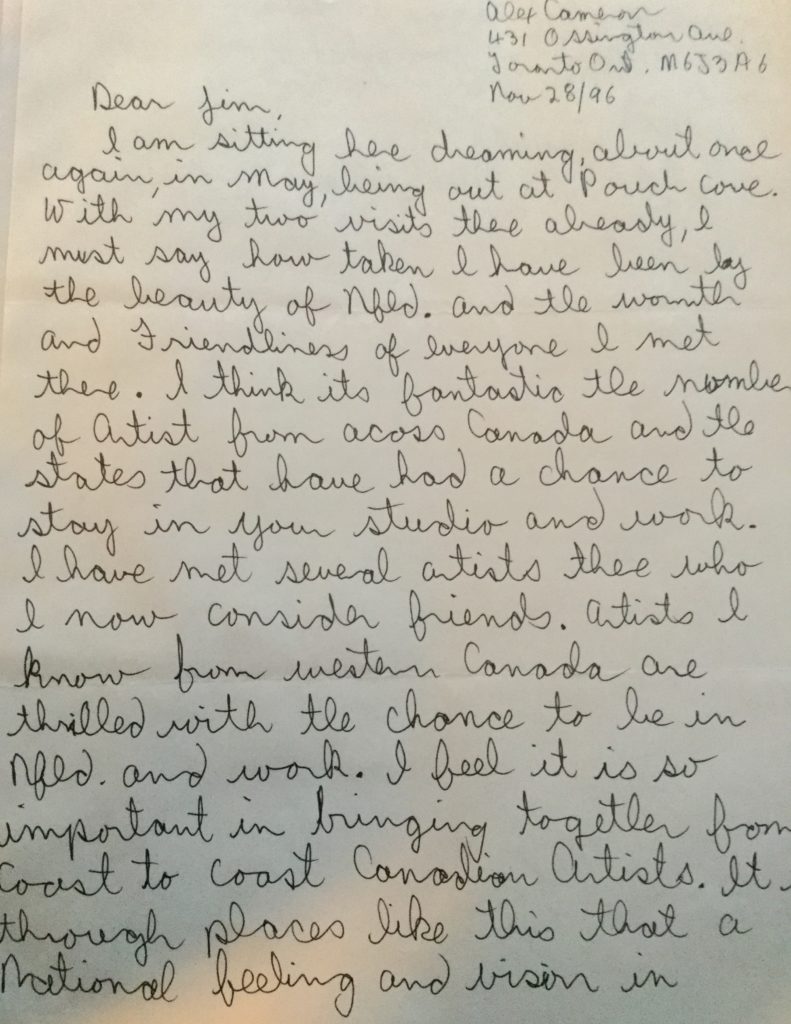 Alex Cameron
431 Ossington Ave.
Toronto Ont. M6J3A6
Nov 28/96
Dear Jim,
I am sitting here dreaming, about once
again, in May, being out at Pouch Cove.
With my two visits thee already, I
must say how taken I have been by
the beauty of Nfld. and the warmth
and Friendliness of everyone I met
there. I think its fantastic the number
of Artist from acoss Canada and the
states that have had a chance to
stay in your studio and work.
I have met several artists thee who
I now consider friends. Artists I
know from western Canada are
thrilled with the chance to be in
Nfld. and work. I feel it is so
important in bringing together from
Coast to coast Canadian Artists. It
through places like this that a
National feeling and vision in